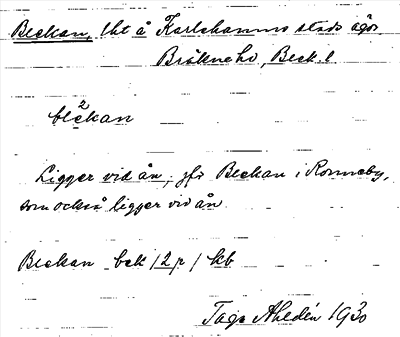 Beckan, lht å Karlshamns stads ägor
Bräkne hd, Blek. l.
2
bleckan
Ligger vid ån; jfr Beckan i Ronneby,
som också ligger vid ån
Beckan bek / 2 p / kb
Tage Ahldén 1930